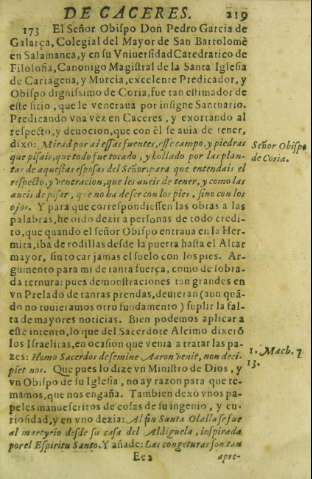 DE CACERES. 219
173 El Señor Obispo Don Pedro Garcia de
Galarça, Colegial del Mayor de San Bartolomè
en Salamanca, y en su Vniversidad Catedratico de
Filosofia, Canonigo Magistral de la Santa Iglesia
de Cartagena, y Murcia, excelente Predicador, y
Obispo dignissimo de Coria, fue tan estimador de
este sitio, que le veneraua por insigne Santuario.
Predicando vna vez en Caceres, y exortando al
respecto, y deuocion, que con èl se auia de tener,
dixo: Mirad por aì essas fuentes, esse campo, y piedras
que pisais, que todo fue tocado, y hollado por las plan-
tas de aquestas esposas del Señor, para que entendais el
respecto, y veneracion, que les aueis de tener, y como las
aueis de pisar, que no ha de ser con los pies, sino con los
ojos. Y para que correspondiessen las obras a las
palabras, he oido dezir a personas de todo credi-
to, que quando el señor Obispo entraua en la Her-
mita, iba de rodillas desde la puerta hasta el Altar
mayor, sin tocar jamas el suelo con los pies. Ar-
gumento para mi de tanta fuerça, como de sobra-
da ternura: pues demonstraciones tan grandes en
vn Prelado de tantas prendas, deuieran (aun quã-
do no tuuieramos otro fundamento) suplir la fal-
ta de mayores noticias. Bien podemos aplicar a
este intento, lo que del Sacerdote Alcimo dixerõ
los Israelitas, en ocasion que venia a tratar las pa-
zes: Homo Sacerdos de semine Aaron venit, non deci-
piet nos. Que pues lo dize vn Ministro de Dios, y
vn Obispo de su Iglesia, no ay razon para que te-
mamos, que nos engaña. Tambien dexò vnos pa-
peles manuescritos de cosas de su ingenio, y cu-
riosidad, y en vno dezia: Al fin Santa Olalla se fue
al martyrio desde su casa del Aldiguela, inspirada
por el Espiritu Santo. Y añade: Las congeturas son tan
Ee2 apre-
Señor Obispo
de Coria.
1. Mach. 7
13.